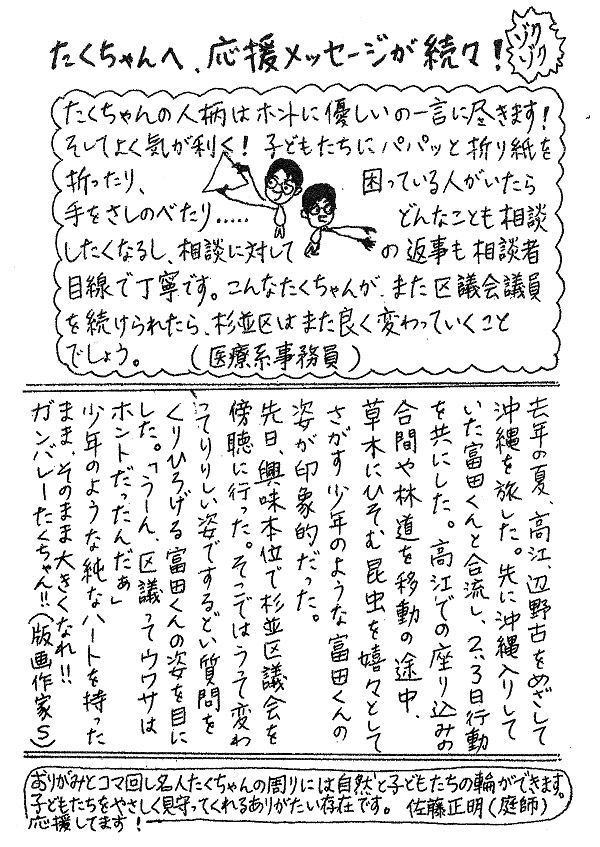 たくちゃんへ、応援メッセージが続々！
ゾク
ゾク
たくちゃんの人柄はホントに優しいの一言に尽きます！
そしてよく気が利く！子どもたちにパパッと折り紙を
折ったり、困っている人がいたら
手をさしのべたり.....どんなことも相談
したくなるし、相談に対しての返事も相談者
目線で丁寧です。こんなたくちゃんが、また区議会議員
を続けられたら、杉並区はまた良く変わっていくこと
でしょう。（医療系事務員）
去年の夏、高江、辺野古をめざして
沖縄を旅した。先に沖縄入りして
いた富田くんと合流し、2、3日行動
を共にした。高江での座り込みの
合間や林道を移動の途中、
草木にひそむ昆虫を嬉々として
さがす少年のような富田くんの
姿が印象的だった。
先日、興味本位で杉並区議会を
傍聴に行った。そこではうって変わ
ってりりしい姿でするどい質問を
くりひろげる富田くんの姿を目に
した。「うーん、区議ってウワサは
ホントだったんだぁ」
少年のような純なハートを持った
まま、そのまま大きくなれ!!
ガンバレーたくちゃん!!（版画作家S）
おりがみとコマ回し名人たくちゃんの周りには自然と子どもたちの輪ができます。
子どもたちをやさしく見守ってくれるありがたい存在です。佐藤正明（庭師）
応援してます！